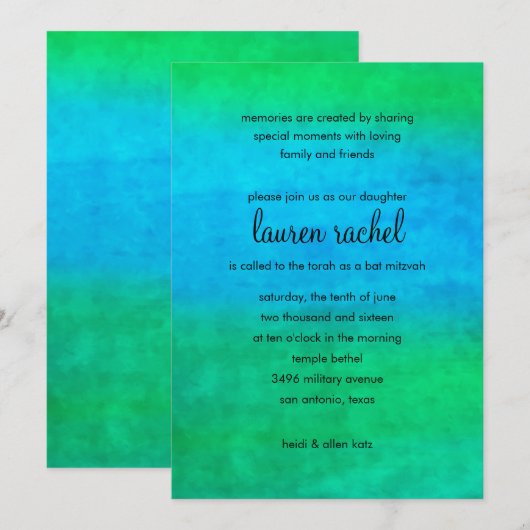 memories are created by sharing
special moments with loving
family and friends
please join us as our daughter
lauren rachel
is called to the torah as a bat mitzvah
saturday, the tenth of june
two thousand and sixteen
at ten o'clock in the morning
temple bethel
3496 military avenue
san antonio, texas
heidi & allen katz